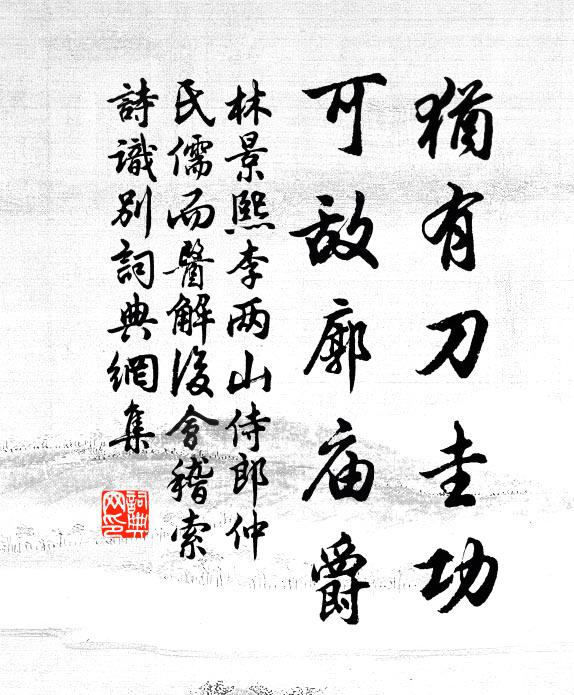 猶有刀圭功
可敌廓庙爵
林景熙李两山侍郎仲
民儒而醫解後會稽索
詩識別詞典網集
詞典
网印